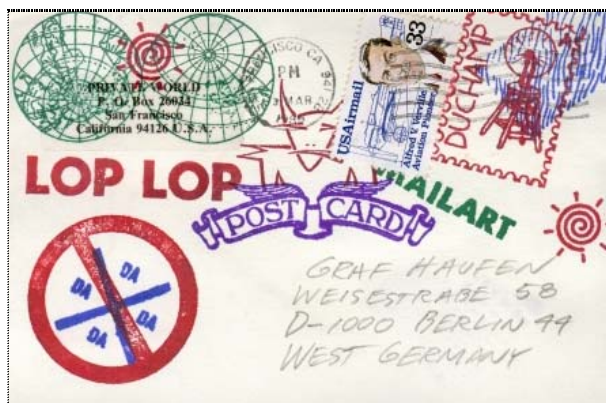 PRIVATE WORLD
P. O. Box 26034
San Francisco
California 94126 U.S.A.
CISCO CA 941
PM
MAR
33
USAirmail
Alfred V. Verville
Aviation Pioneer
DUCHAMP
LOP LOP
MAILART
POST CARD
DA
DA DA
DA
GRAF HAUFEN
WEISESTRAßE 58
D-1000 BERLIN 44
WEST GERMANY